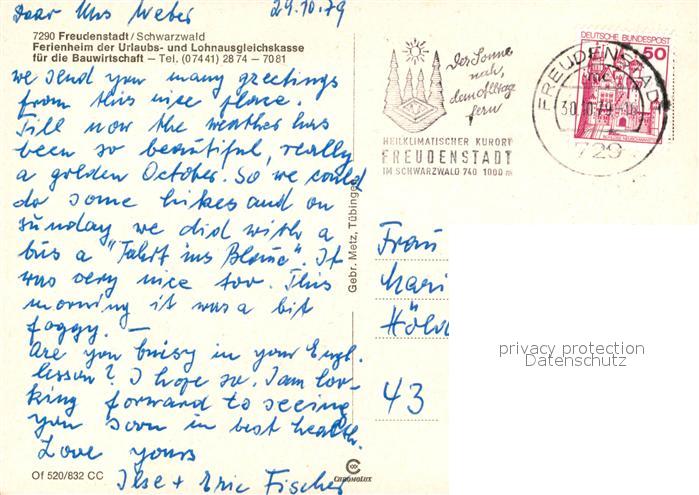 Dear Mrs Weber 29.10.79
7290 Freudenstadt / Schwarzwald
Ferienheim der Urlaubs- und Lohnausgleichskasse
für die Bauwirtschaft – Tel. (07441) 2874 – 7081
we send you many greetings
from this nice place.
Till now the weather has
been so beautiful, really
a golden October. So we could
do some hikes and on
sunday we did with a
bus a "Fahrt ins Blaue". It
was very nice too. This
morning it was a bit
foggy. —
Are you busy in your Engl.
lesson? I hope so. I am loo-
king forward to seeing
you soon in best health.
Love yours
Ilse + Eric Fischer
Of 520/832 CC
CHROMOLUX
Gebr. Metz, Tübingen
Der Sonne
nah,
dem Alltag
fern
HEILKLIMATISCHER KURORT
FREUDENSTADT
IM SCHWARZWALD 740 1000 m
FREUDENSTADT
30.10.79
729
DEUTSCHE BUNDESPOST
50
Frau
Mari
43
privacy protection
Datenschutz